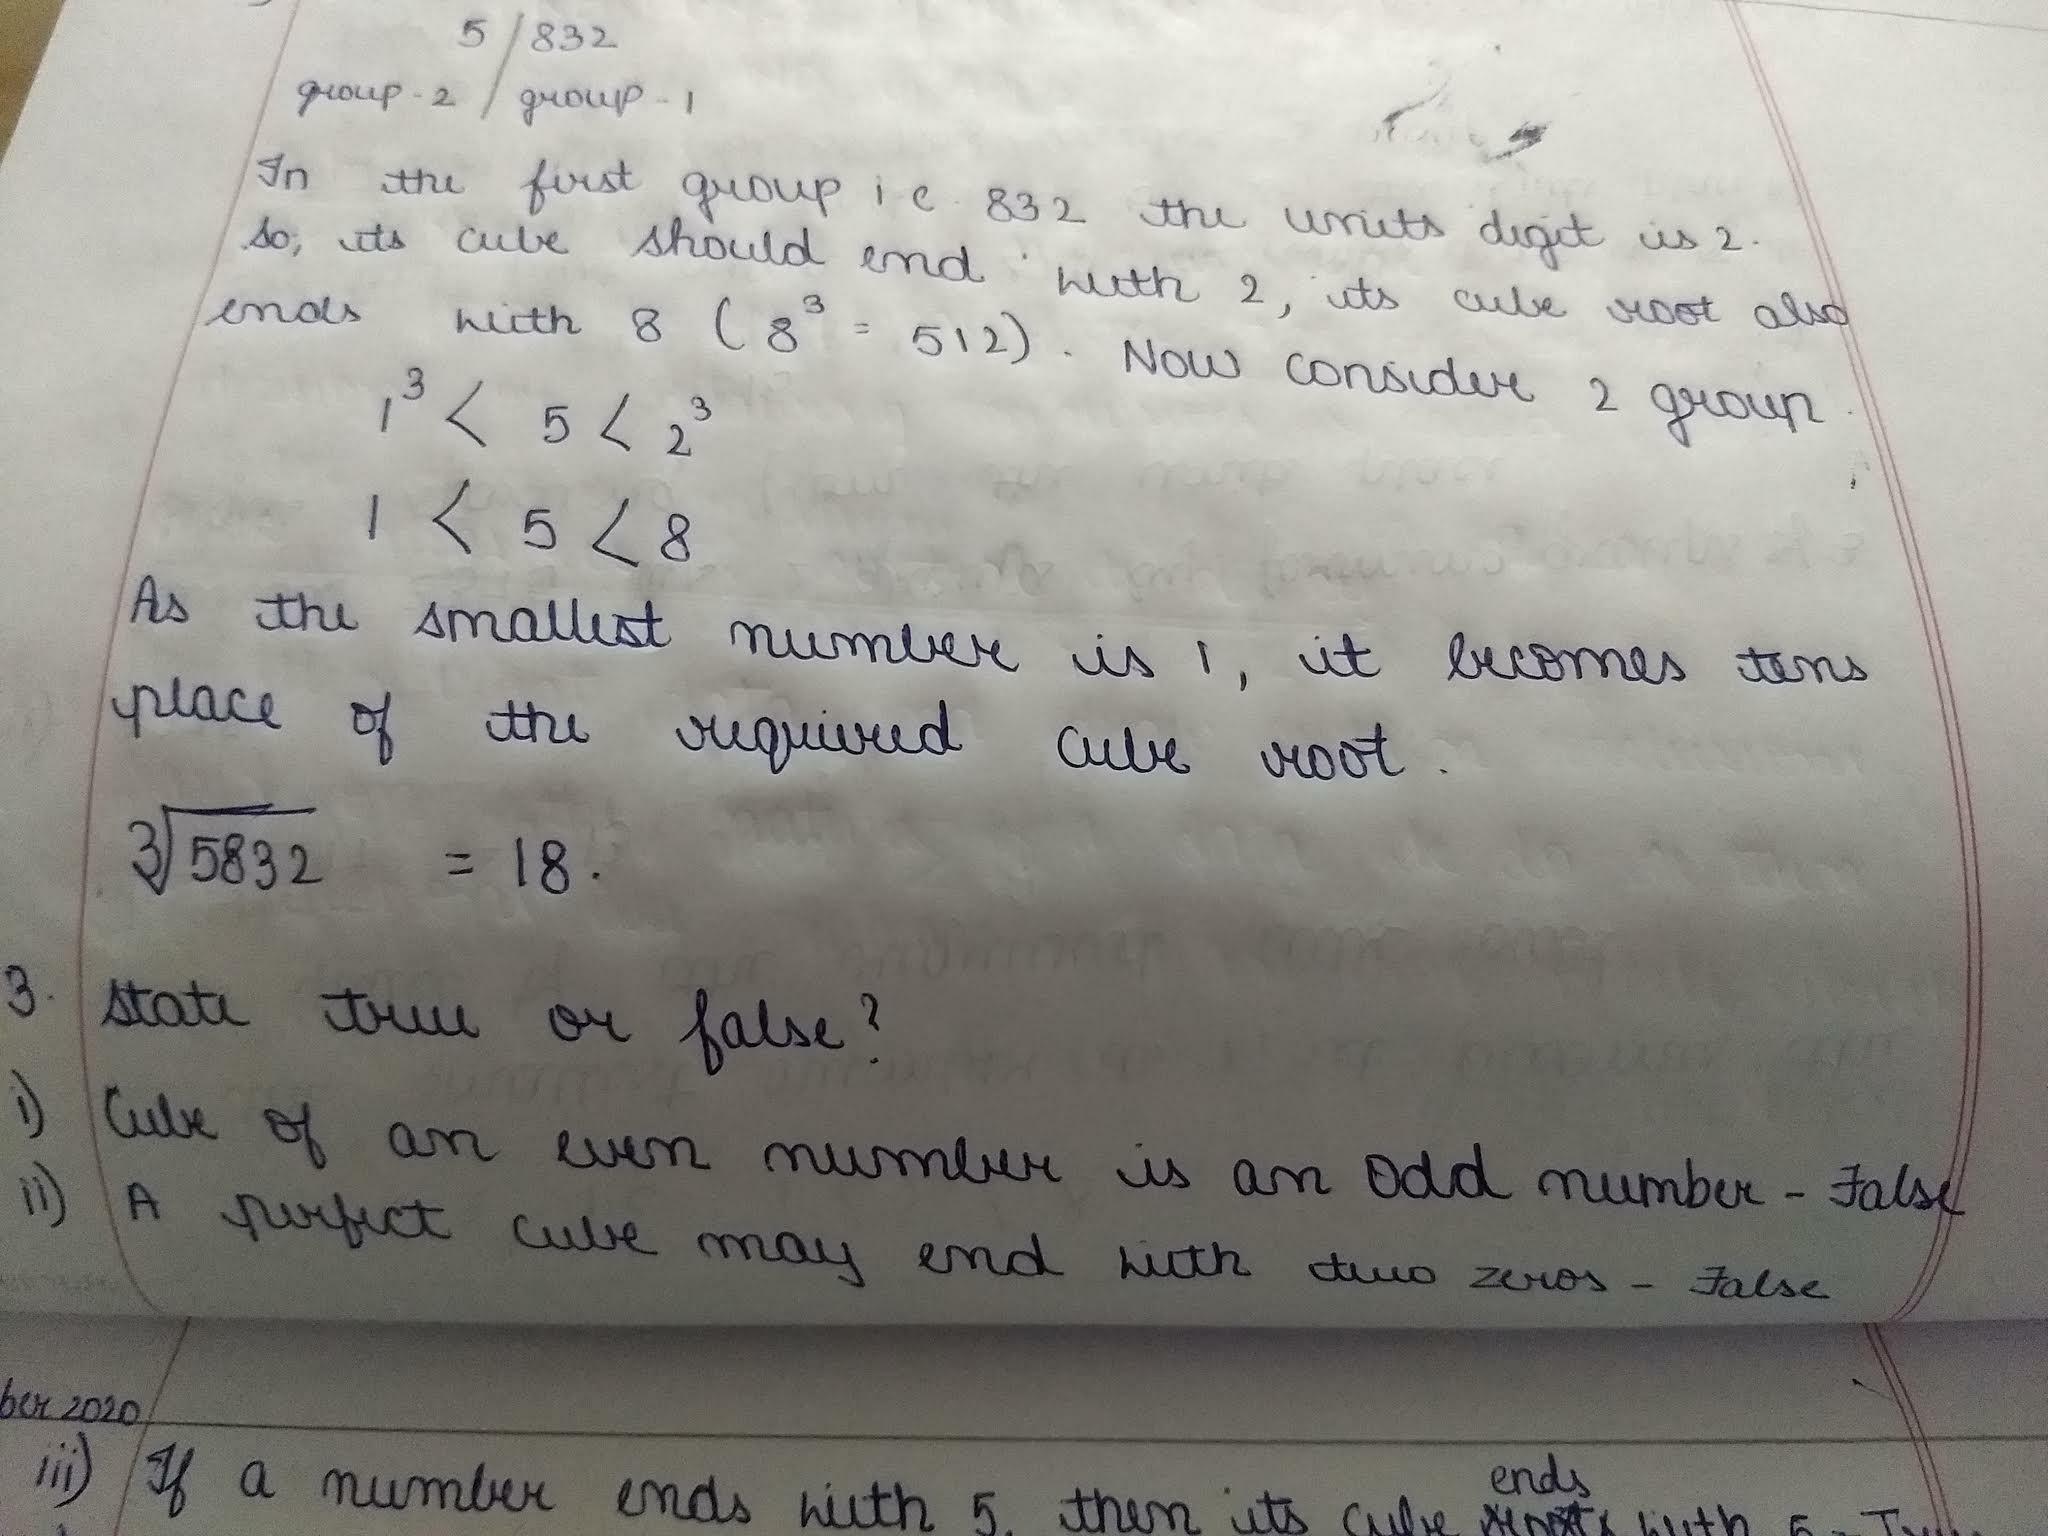 5 / 832
group-2 / group-1
In the first group i e 832 the units digit is 2.
So, its cube should end with 2, its cube root also
ends with 8 (8³ = 512). Now consider 2 group.
1³ < 5 < 2³
1 < 5 < 8
As the smallest number is 1, it becomes tens
place of the required cube root.
∛5832 = 18.
3. State true or false?
i) Cube of an even number is an odd number - False
ii) A perfect cube may end with two zeros - False
ber 2020
iii) If a number ends with 5, then its cube ends with 5 -